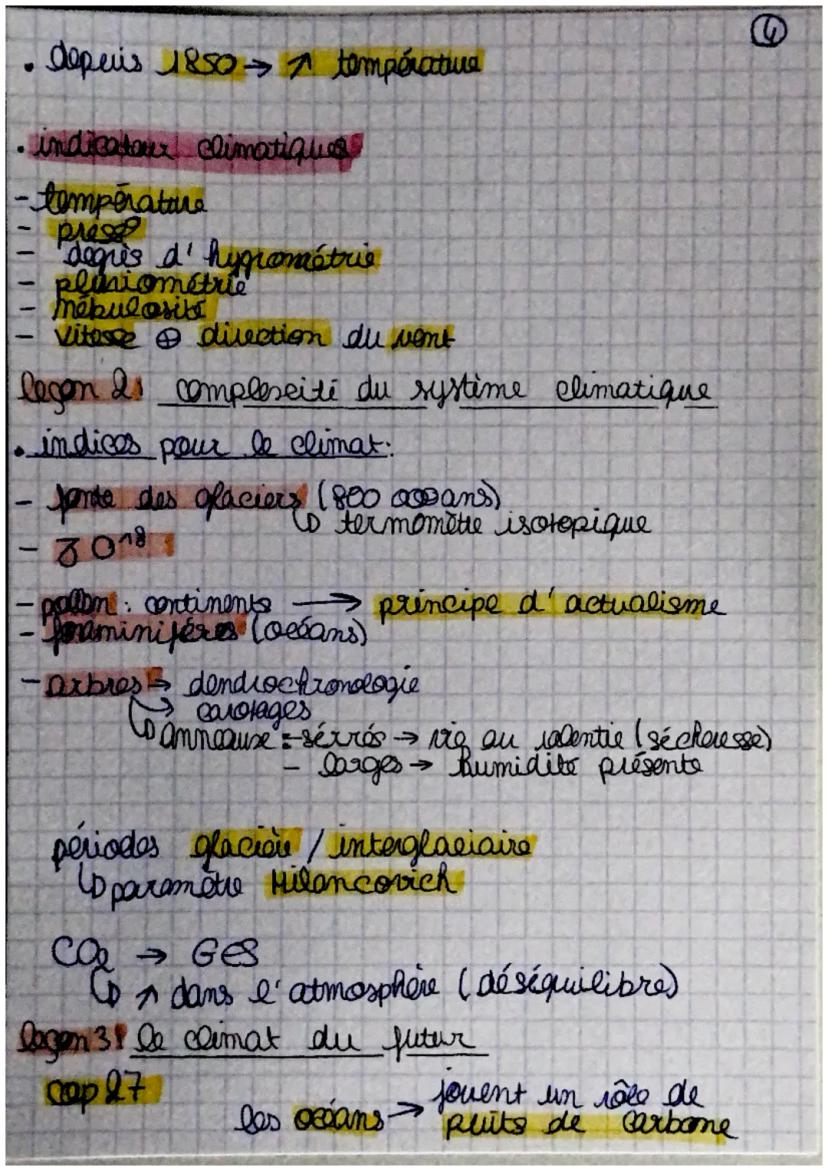 4
• depuis 1850 → ↗ température
• indicateur climatiques
- température
- press°
- degrès d' hygrométrie
- pluviométrie
- nébulosité
- vitesse ⊕ direction du vent
leçon 2: complexité du système climatique
• indices pour le climat:
- fonte des glaciers (800 000 ans)
↳ termomètre isotopique
- O¹⁸ :
- pollen : continents → principe d'actualisme
- foraminifères (océans)
- arbres → dendrochronologie
↳ carotages
↳ anneaux : - sérrés → vég au ralentie (sécheresse)
- larges → humidité présente
périodes glacière / interglaciaire
↳ paramètre Milancovich
CO₂ → GES
↳ ↗ dans l'atmosphère (déséquilibre)
leçon 3: le climat du futur
cop 27
les océans → jouent un rôle de
puits de carbone